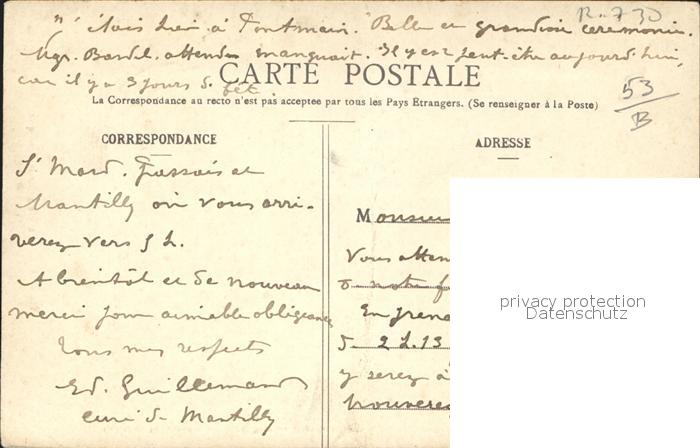 J'étais hier à Pontmain. Belle et grandiose cérémonie.
Mgr. attendu manquait. Il y est peut-être aujourd'hui,
car il y a 3 jours de fête
R-730
53
B
CARTE POSTALE
La Correspondance au recto n'est pas acceptée par tous les Pays Etrangers. (Se renseigner à la Poste)
CORRESPONDANCE
St Mard. Passais et
Mantilly où vous arri-
verez vers 5 h.
A bientôt et de nouveau
merci pour aimable obligeance
Tous mes respects
Ed. Guillemard
curé de Mantilly
ADRESSE
Monsieur
Vous atten
à notre f
En prena
de 2 h. 13
y serez à
trouverez
privacy protection
Datenschutz